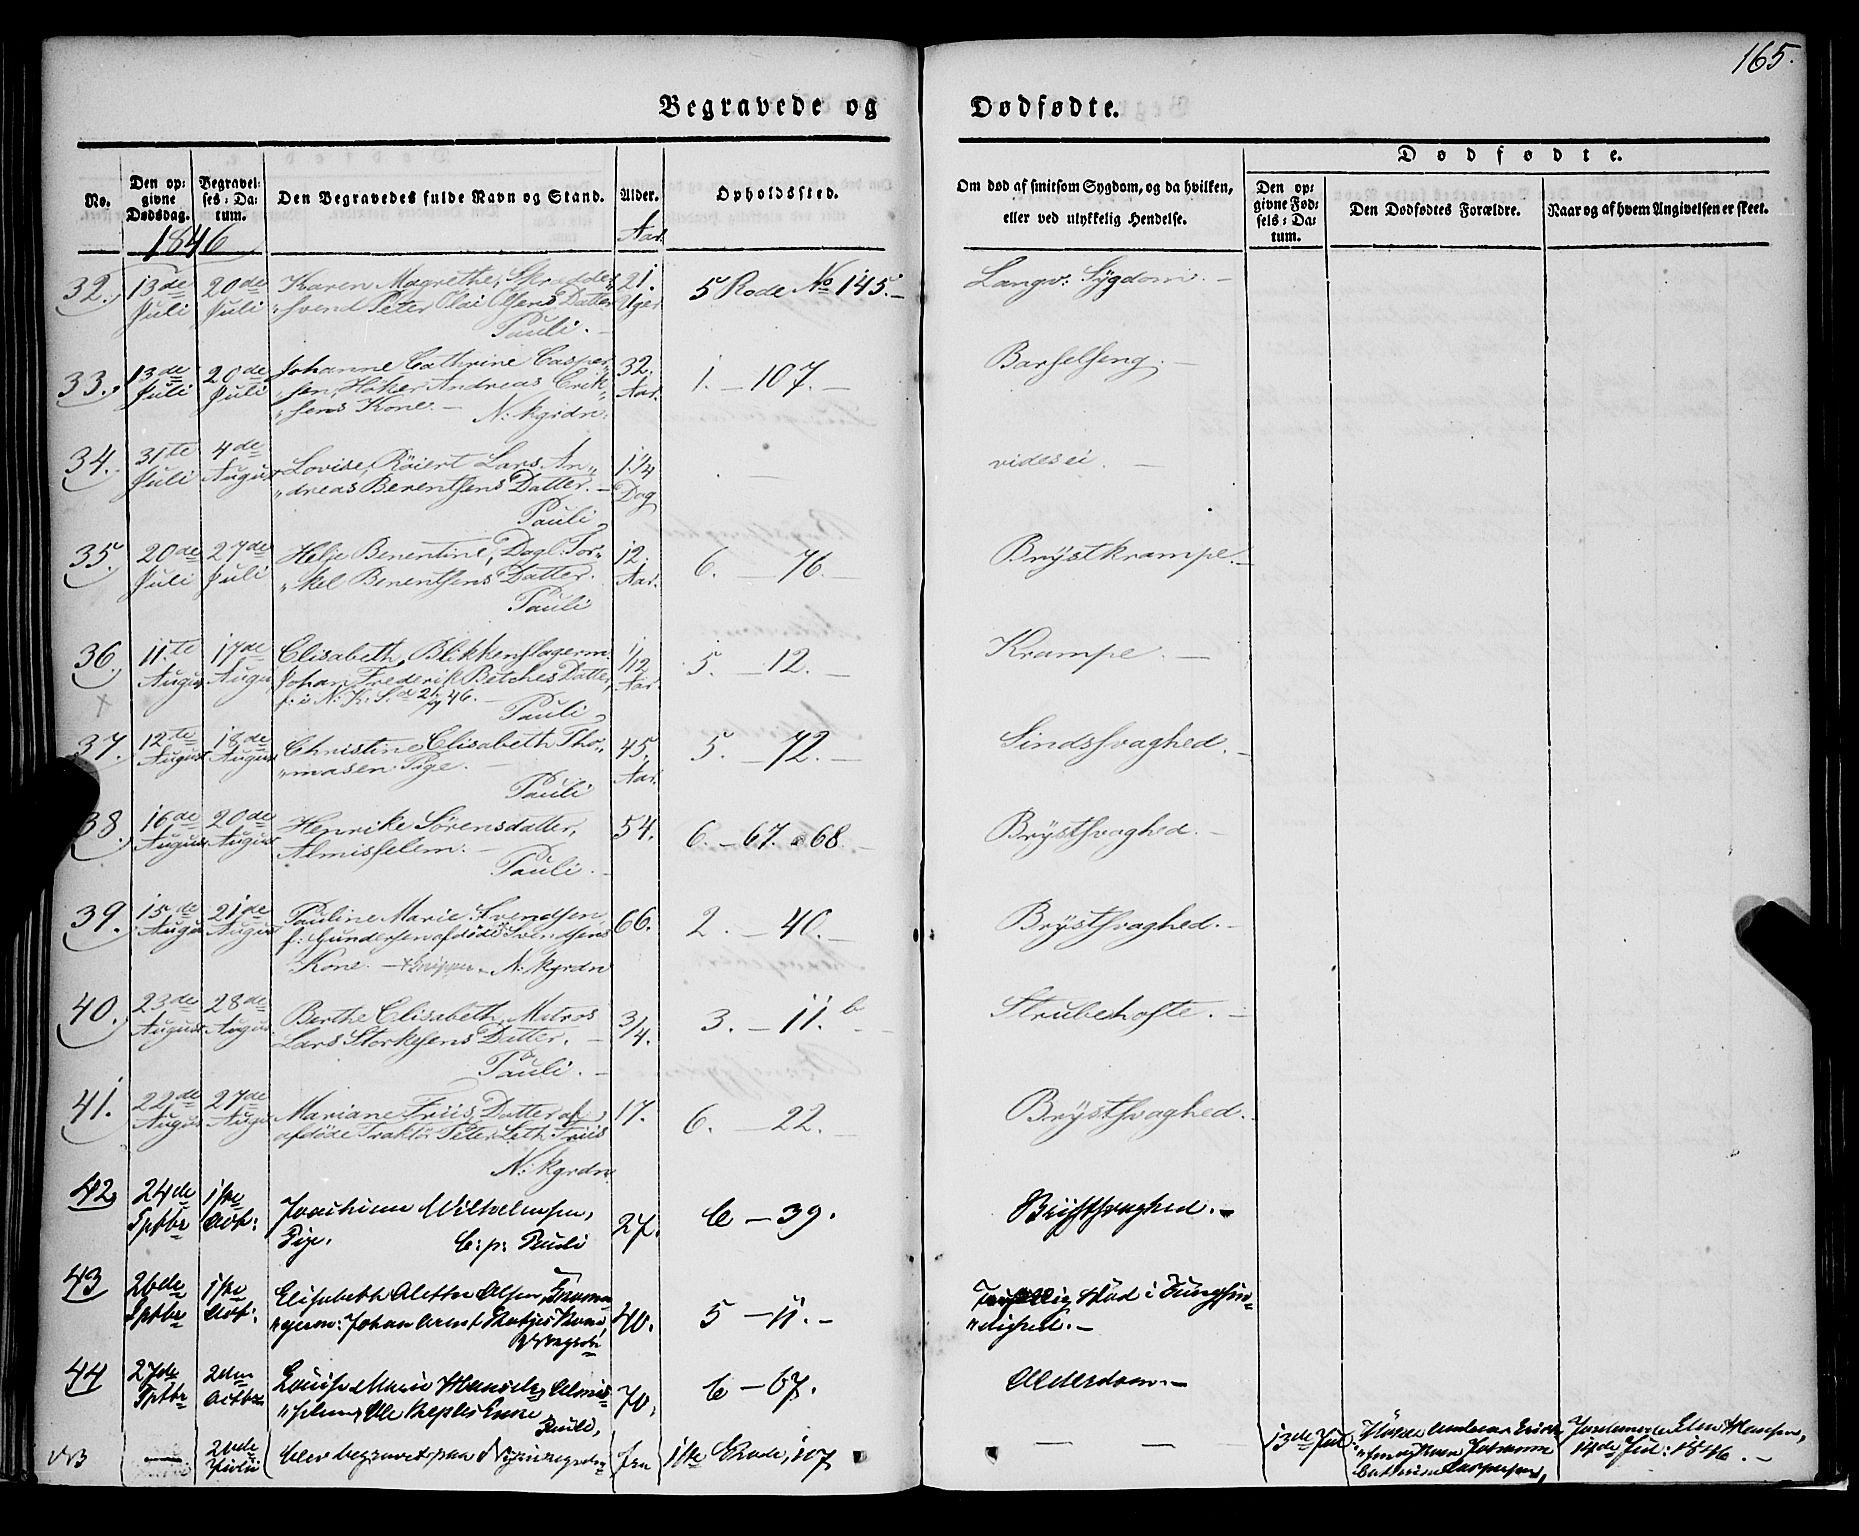 165.
Begravede og Dødfødte.
No.
Den op-
givne
Dødsdag.
Begravel-
ses-Da-
tum.
Den Begravedes fulde Navn og Stand.
Alder.
Opholdssted.
Om død af smitsom Sygdom, og da hvilken,
eller ved ulykkelig Hendelse.
Dødfødte.
Den op-
givne Fød-
sels-Da-
tum.
Den Dødfødtes Forældre.
Naar og af hvem Angivelsen er skeet.
1846
Aar.
32. 13de Juli 20de Juli
Karen Magrethe, Skrædder
svend Peter Olai Olsens Datter
Pauli.
21. Uger
5 Rode No 145.
Langv: Sygdom.
33. 13de Juli 20de Juli
Johanne Cathrine Casper
sen, Høker Andreas Erik
sens Kone. N: kgrdn.
32. Aar.
1. 107.
Barselseng.
34. 31te Juli 4de August
Lovise, Røiert Lars An
dreas Berentsens Datter.
Pauli
1 1/4 Dag
vides ei.
35. 20de Juli 27de Juli
Helje Berentine, Dagl: Tor
kel Berentsens Datter.
Pauli
12. Aar.
6. 76.
Brystkrampe.
36. 11te August 17de August
Elisabeth, Blikkenslagerm.
Johan Frederik Betches Datter,
Pauli
1/12 Aar.
5. 12.
Krampe.
37. 12te August 18de August
Christine Elisabeth Tho
masen Pige.
Pauli
45. Aar.
5. 72.
Sindssvaghed.
38. 16de August 20de August
Henrike Sørensdatter,
Almisselem.
Pauli.
54.
6. 67. a 68.
Brystsvaghed.
39. 15de August 21de August
Pauline Marie Svendsen,
f: Gundersen afdøde Svendsens
Kone. Skipper. N: kgrdn
66.
2. 40.
Brystsvaghed.
40. 23de August 28de August
Berthe Elisabeth, Matros
Lars Storkesens Datter.
Pauli.
3/4.
3. 11. b
Strubehoste.
41. 22de August 27de August
Mariane Friis, Datter af
afdøde Traktør Peter Leth Friis
N: kgrdn
17.
6. 22.
Brystsvaghed.
42 24de Sptbr 1ste Octb:
Joachime Wilhelmsen,
Pige. C: p: Pauli
27.
6 - 39.
Brystsvaghed.
43 26de Sptbr 1ste Octb:
Elisabeth Alette Olsen,
Johan Arnt Kone,
40.
5 - 11.
44 27de Sptbr 2den Octbr
Louise Marie
Ole Enke
Pauli,
70,
6 - 67.
Alderdom.
NB 20de Juli
blev begravet paa
fra
1ste Rode, 107
13de Jul
Høker Andreas Erik
sen og Kone Johanne
Cathrine Caspersen,
Jordemoder Elen Hansen,
14de Jul: 1846.